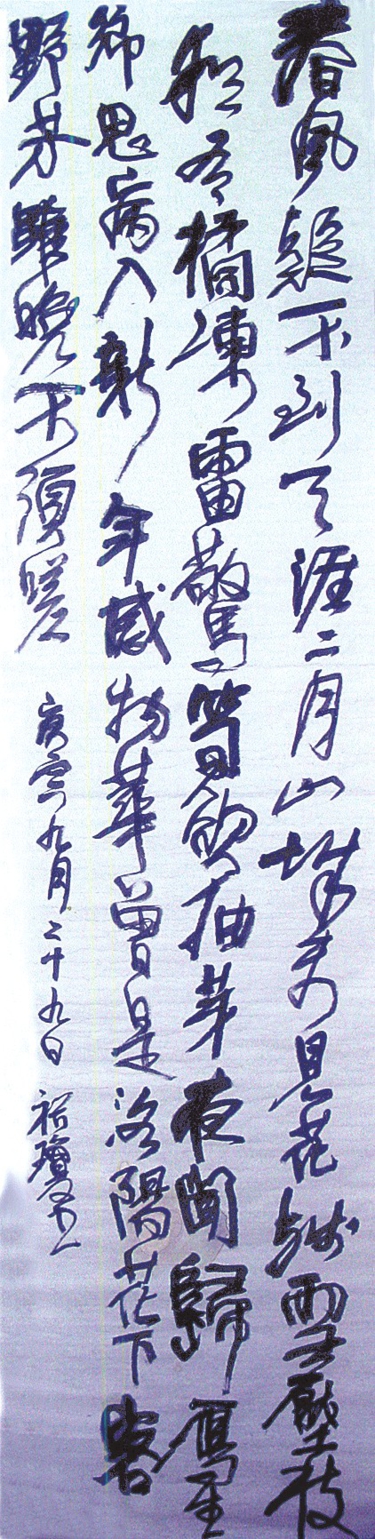 春風疑不到天涯二月山城未見花殘雪壓枝
猶有橘凍雷驚筍欲抽芽夜聞歸鴈生
鄉思病入新年感物華曾是洛陽花下客
野芳雖晚不須嗟 庚寅九月二十九日